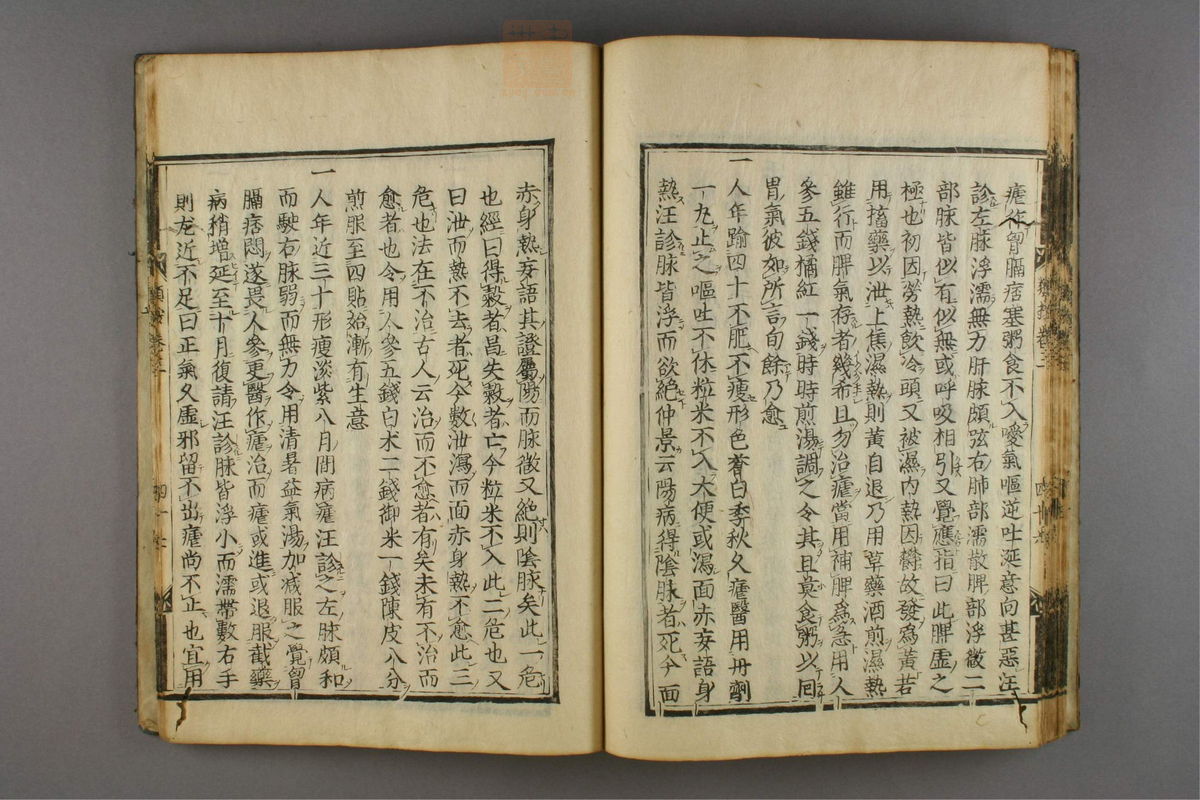 瘧作胷膈痞塞粥食不入噯氣嘔逆吐涎意向甚惡汪
診左脉浮濡無力肝脉頗弦右肺部濡散脾部浮微二
部脉皆似有似無或呼吸相引又覺應指曰此脾虛之
極也初因勞熱飲冷頭又被濕内熱因欝故發爲黄若
用搐藥以泄上焦濕熱則黄自退乃用草藥酒煎濕熱
雖行而脾氣存者幾希且勿治瘧當用補脾爲急用人
參五錢橘紅一錢時時煎湯調之令其旦莫食粥以回
胃氣彼如所言旬餘乃愈
一人年踰四十不肥不瘦形色蒼白季秋久瘧醫用丹劑
一九止之嘔吐不休粒米不入大便或瀉面赤妄語身
熱汪診脉皆浮而欲絶仲景云陽病得陰脉者死今面
赤身熱妄語其證屬陽而脉微又絶則陰脉矣此一危
也經曰得榖者昌失榖者亡今粒米不入此二危也又
曰泄而熱不去者死今數泄瀉而面赤身熱不愈此三
危也法在不治古人云治而不愈者有矣未有不治而
愈者也令用人參五錢白朮二錢御米一錢陳皮八分
煎服至四貼始漸有生意
一人年近三十形瘦淡紫八月間病瘧汪診之左脉頗和
而駛右脉弱而無力令用清暑益氣湯加減服之覺胷
膈痞悶遂畏人參更醫作瘧治而瘧或進或退服截藥
病稍增延至十月復請汪診脉皆浮小而濡帶數右手
則尤近不足曰正氣久虛邪留不出瘧尚不止也宜用